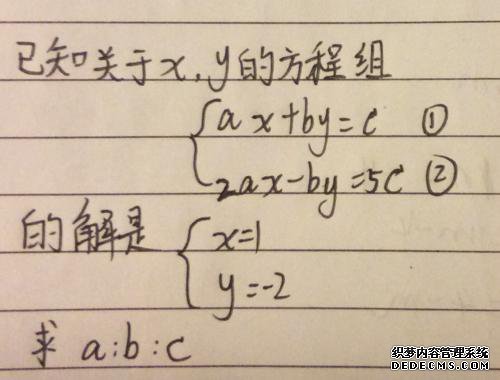 已知关于x,y的方程组
ax+by=c ①
2ax-by=5c ②
的解是 x=1
y=-2
求 a:b:c
织梦内容管理系统
DEDECMS.COM